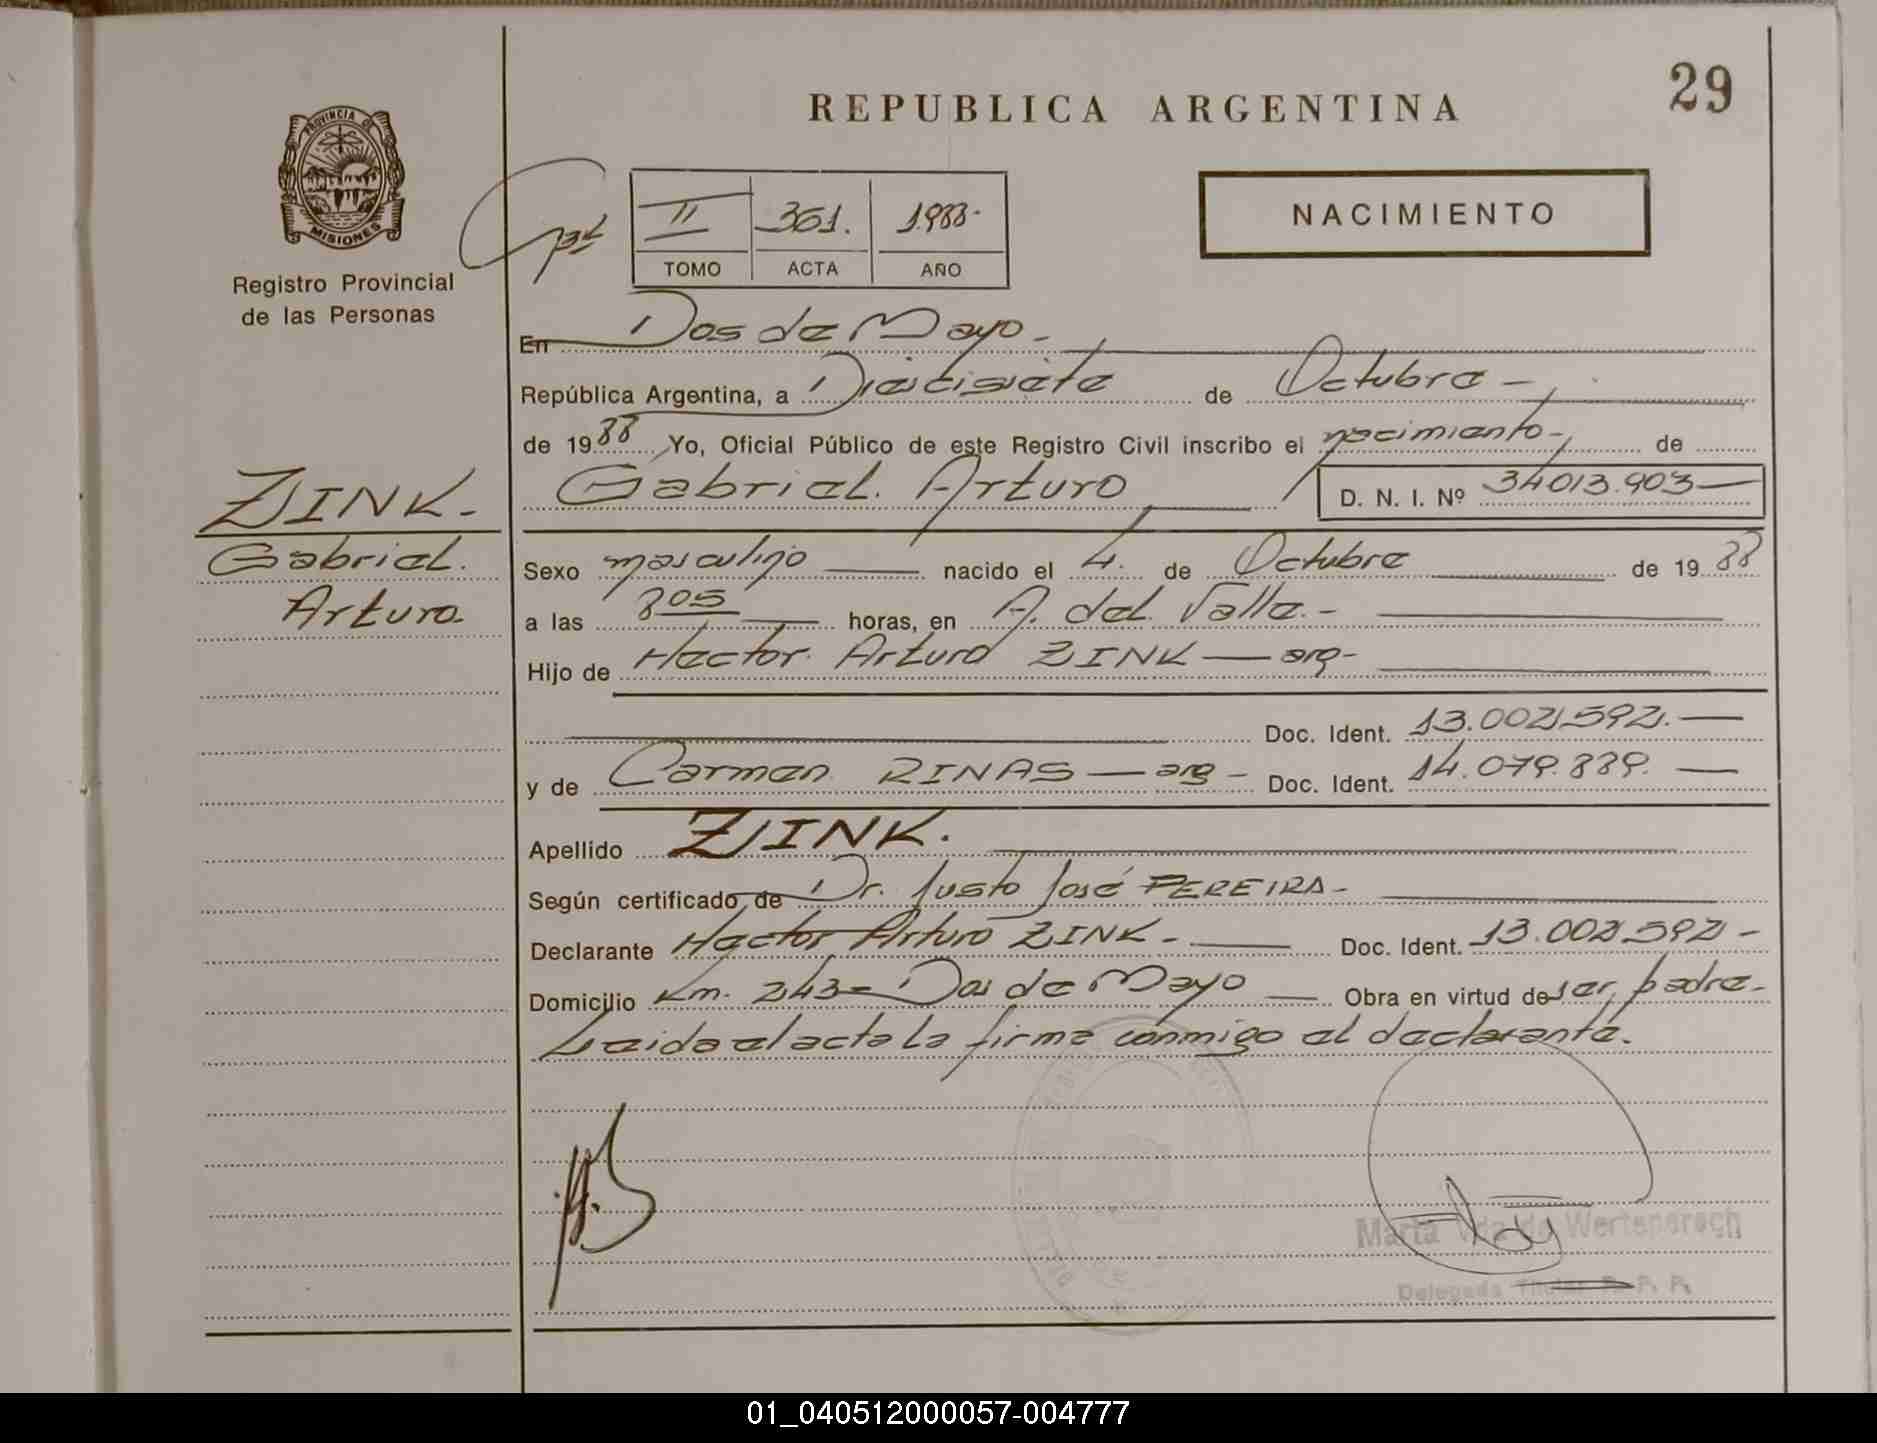 29
REPUBLICA ARGENTINA
PROVINCIA DE
MISIONES
Registro Provincial
de las Personas
II 361. 1.988-
TOMO ACTA AÑO
NACIMIENTO
En Dos de Mayo -
República Argentina, a Diecisiete de Octubre -
de 1988 Yo, Oficial Público de este Registro Civil inscribo el nacimiento - de
Gabriel. Arturo D. N. I. Nº 34013.903
ZINK.
Gabriel.
Arturo.
Sexo masculino nacido el 4. de Octubre de 1988
a las 805 horas, en A. del Valle. -
Hijo de Hector. Arturo ZINK — arg-
Doc. Ident. 13.002.592. —
y de Carmen RINAS — arg - Doc. Ident. 14.079.889. —
Apellido ZINK.
Según certificado de Dr. Justo José PEREIRA -
Declarante Hector Arturo ZINK - Doc. Ident. 13.002.592 -
Domicilio Km. 243 - Dos de Mayo — Obra en virtud de ser padre -
Leida el acta la firma conmigo el declarante.
Marta Vda de
Delegada Titular R. P. P.
01_040512000057-004777